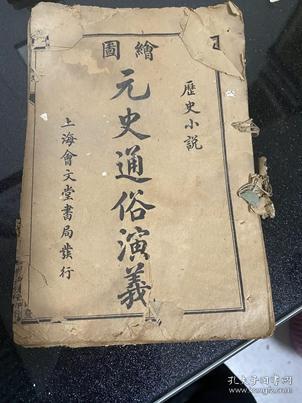 繪圖
歷史小説
元史通俗演義
上海會文堂書局發行
孔夫子旧书网